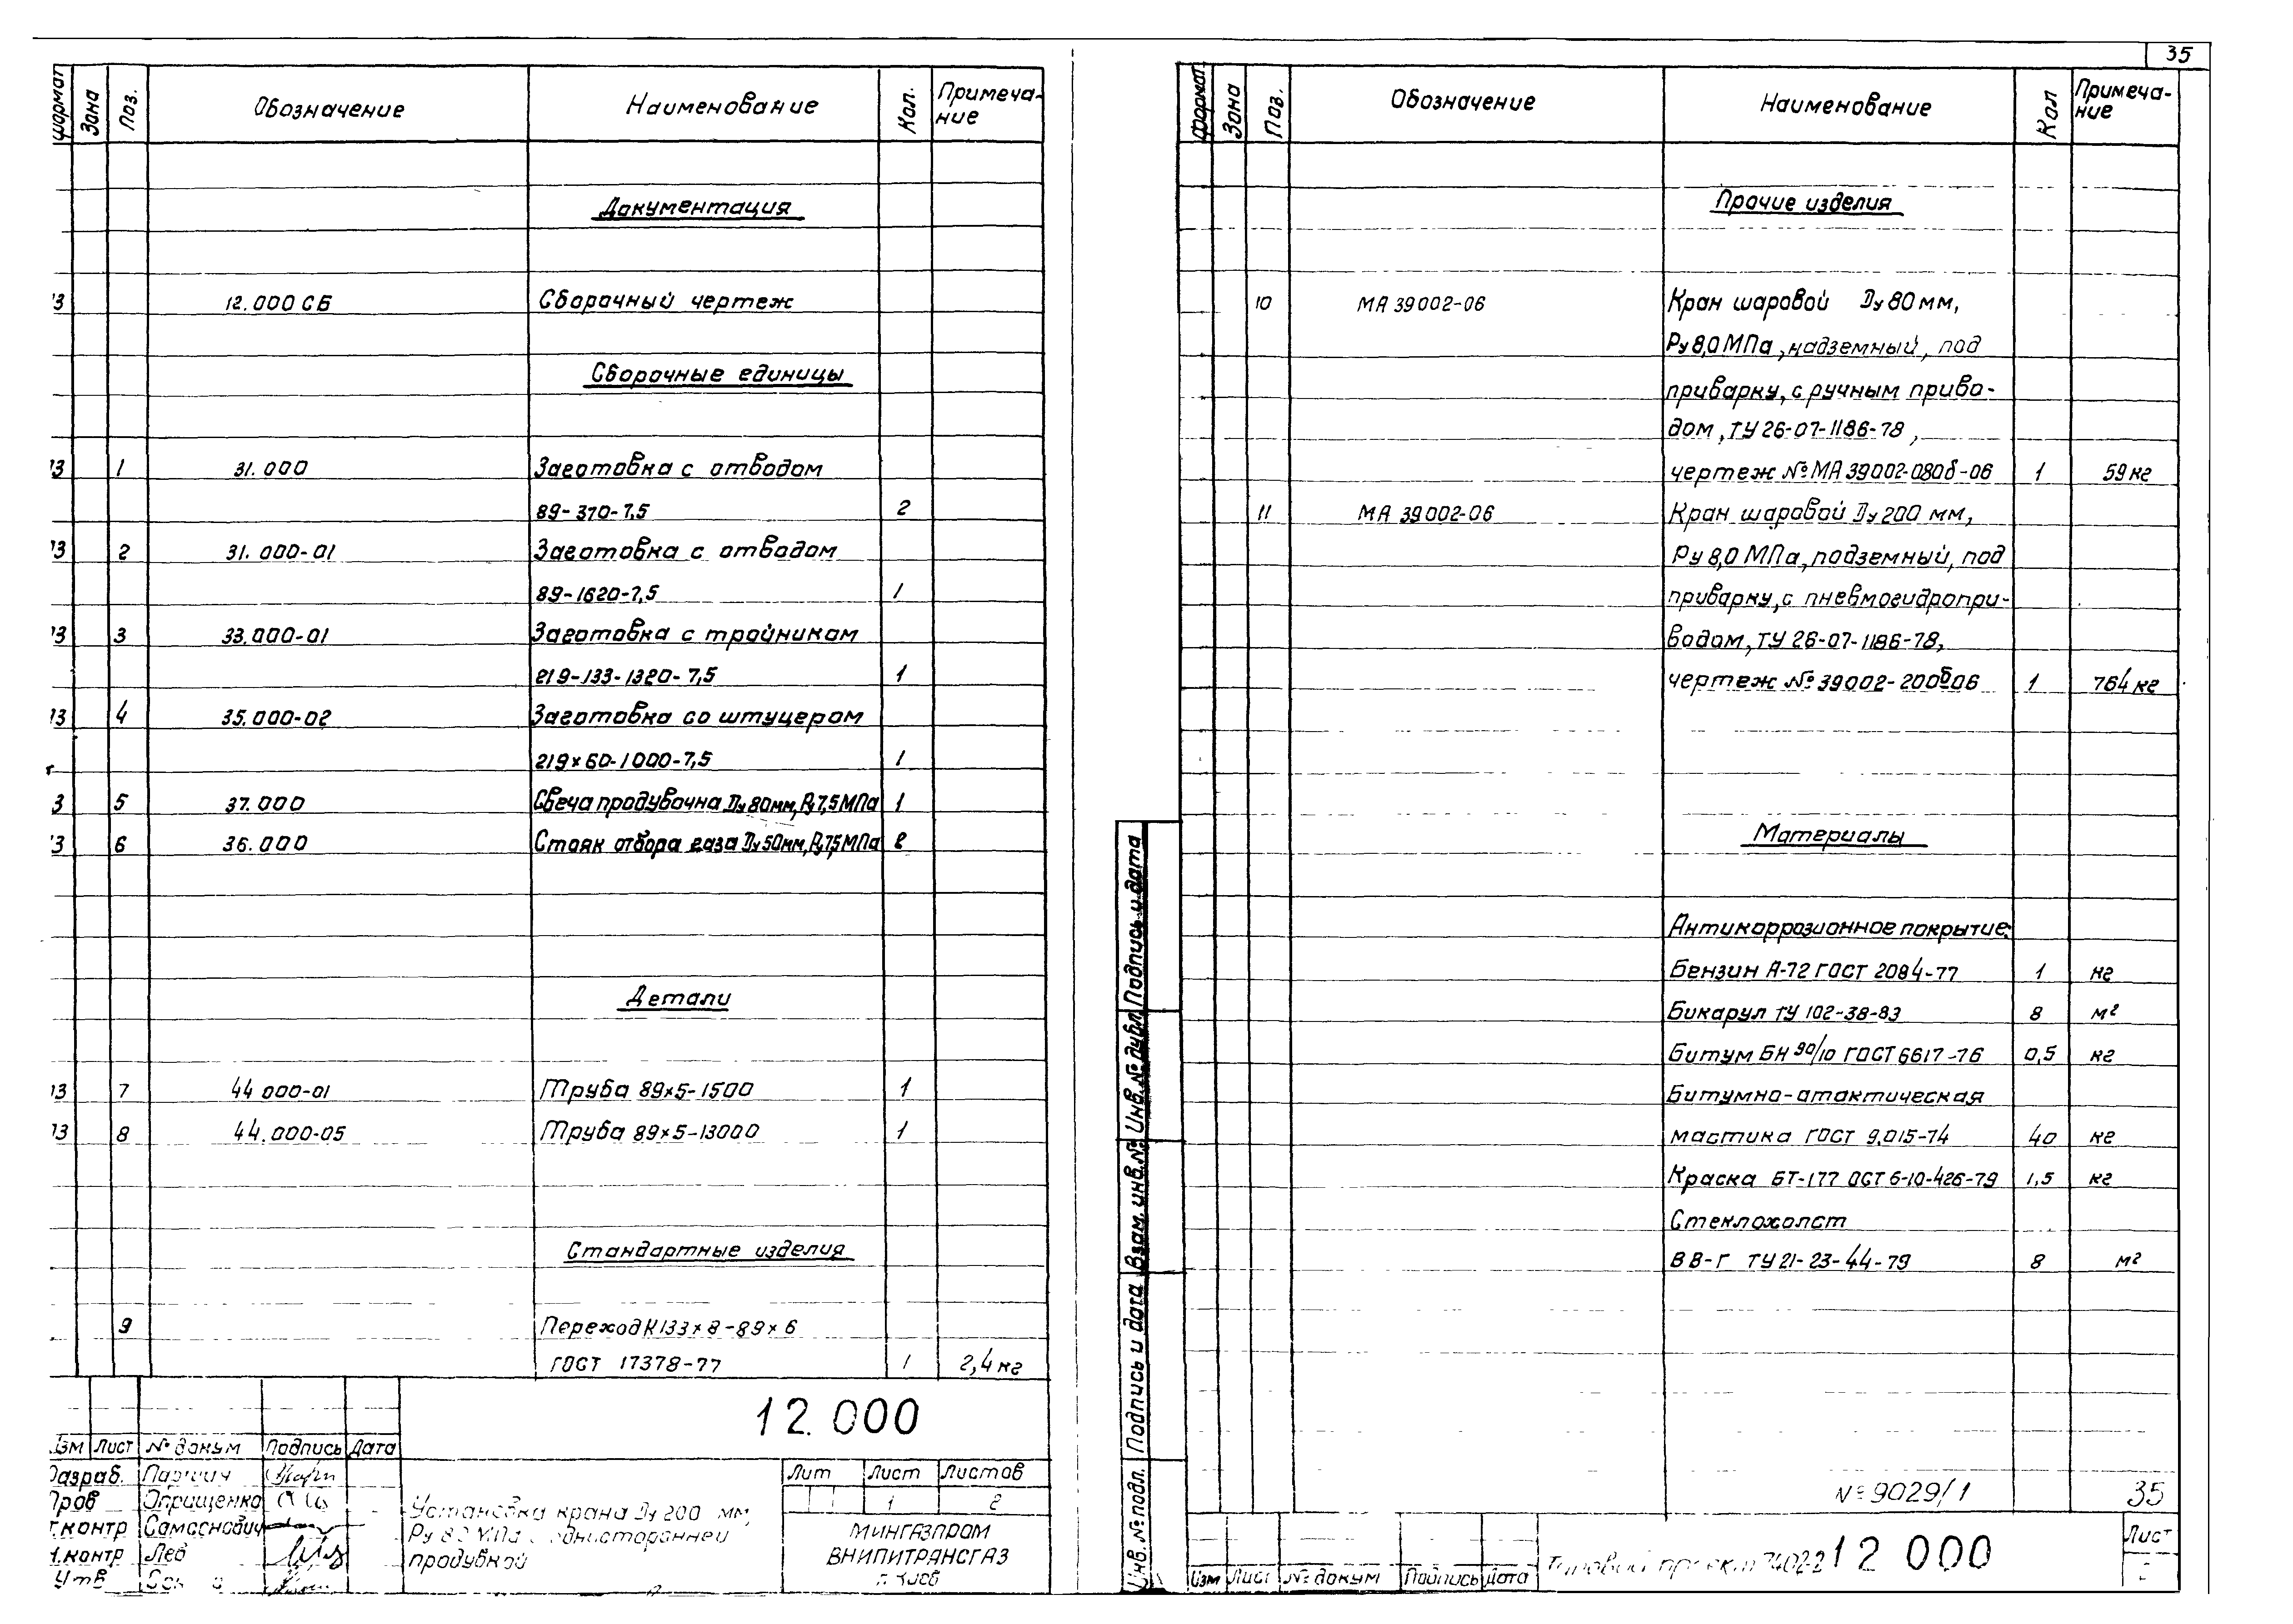 формат Зона Поз. Обозначение Наименование Кол. Примеча-
ние
Документация
13 12.000 СБ Сборочный чертеж
Сборочные единицы
13 1 31.000 Заготовка с отводом
89-370-7,5 2
13 2 31.000-01 Заготовка с отводом
89-1620-7,5 1
13 3 33.000-01 Заготовка с тройником
219-133-1320-7,5 1
13 4 35.000-02 Заготовка со штуцером
219×60-1000-7,5 1
3 5 37.000 Свеча продувочна Ду 80мм, Ру 7,5 МПа 1
13 6 36.000 Стояк отбора газа Ду 50мм, Ру 7,5 МПа 2
Детали
13 7 44 000-01 Труба 89×5-1500 1
13 8 44.000-05 Труба 89×5-13000 1
Стандартные изделия
9 Переход К133×8-89×6
ГОСТ 17378-77 1 2,4 кг
12.000
Изм Лист № докум Подпись Дата
Разраб.
Пров Оприщенко
Т.контр Самоснович
Н.контр Лев
Утв
Установка крана Ду 200 мм,
Ру 8,0 МПа с односторонней
продувкой
Лит Лист Листов
1 2
МИНГАЗПРОМ
ВНИПИТРАНСГАЗ
г. Киев
35
формат Зона Поз. Обозначение Наименование Кол Примеча-
ние
Прочие изделия
10 МА 39002-06 Кран шаровой Ду 80 мм,
Ру 8,0 МПа, надземный, под
приварку, с ручным приво-
дом, ТУ 26-07-1186-78,
чертеж № МА 39002-080б-06 1 59 кг
11 МА 39002-06 Кран шаровой Ду 200 мм,
Ру 8,0 МПа, подземный, под
приварку, с пневмогидропри-
водом, ТУ 26-07-1186-78,
чертеж № 39002-200б06 1 764 кг
Материалы
Антикоррозионное покрытие:
Бензин А-72 ГОСТ 2084-77 1 кг
Бикарул ТУ 102-38-83 8 м²
Битум БН 90/10 ГОСТ 6617-76 0,5 кг
Битумно-атактическая
мастика ГОСТ 9.015-74 40 кг
Краска БТ-177 ОСТ 6-10-426-79 1,5 кг
Стеклохолст
ВВ-Г ТУ 21-23-44-79 8 м²
№ 9029/1 35
Инв. № подл. Подпись и дата Взам. инв. № Инв. № дубл. Подпись и дата
Изм Лист № докум Подпись Дата
Типовой проект 7402-2 12 000
Лист
2